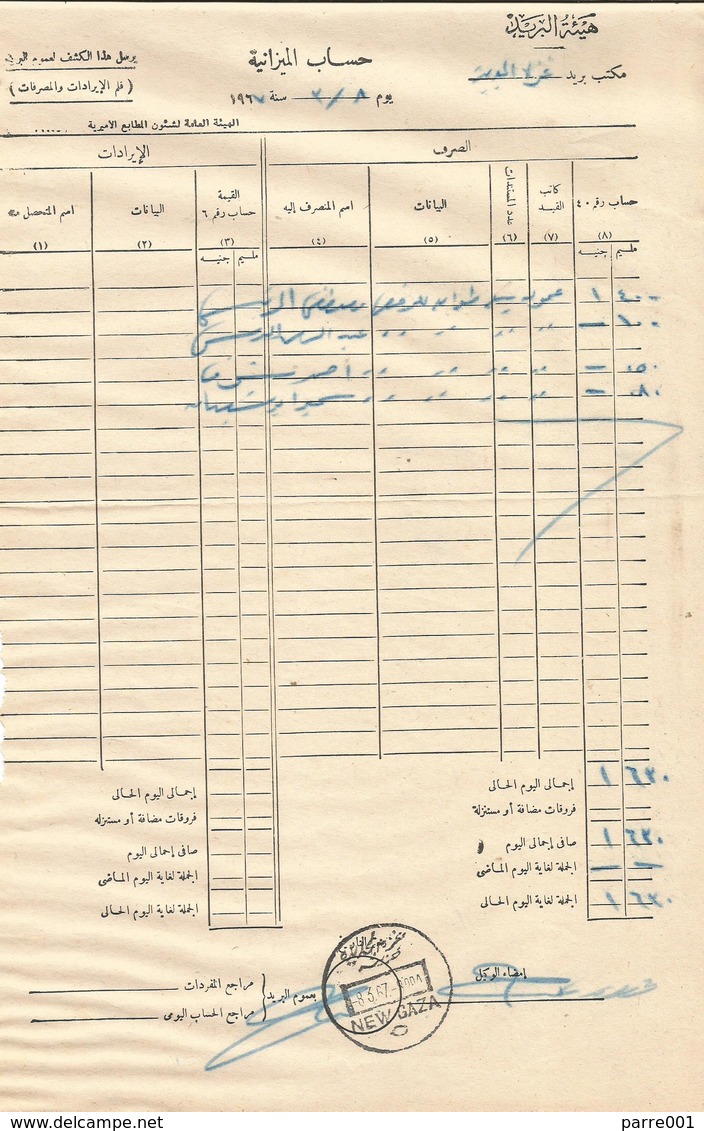 هيئة البريد
حساب الميزانية
يرسل هذا الكشف لعموم البريد
مكتب بريد غزة الجديدة
( قلم الإيرادات والمصرفات )
يوم ٨/٣ سنة ١٩٦٧
الهيئة العامة لشئون المطابع الاميرية
الصرف
الإيرادات
حساب رقم ٤٠
كاتب القيد
عدد المستندات
البيانات
اسم المنصرف إليه
القيمة
حساب رقم ٦
البيانات
اسم المتحصل منه
(٨) (٧) (٦) (٥) (٤) (٣) (٢) (١)
مليم جنيه
مليم جنيه
٤٠٠ ١ مصطفى
١٠٠ — ,, ,, ,, ,,
٠٥٠ — ,, ,, ,, ,, احمد
٠٨٠ — ,, ,, ,, ,,
إجمالى اليوم الحالى ٦٣٠ ١
فروقات مضافة أو مستنزلة
صافى إجمالى اليوم ٦٣٠ ١
الجملة لغاية اليوم الماضى — —
الجملة لغاية اليوم الحالى ٦٣٠ ١
إجمالى اليوم الحالى
فروقات مضافة أو مستنزله
صافى إجمالى اليوم
الجملة لغاية اليوم الماضى
الجملة لغاية اليوم الحالى
إمضاء الوكيل
بعموم البريد
مراجع المفردات
مراجع الحساب اليومى
8.3.67.
NEW GAZA
parre001